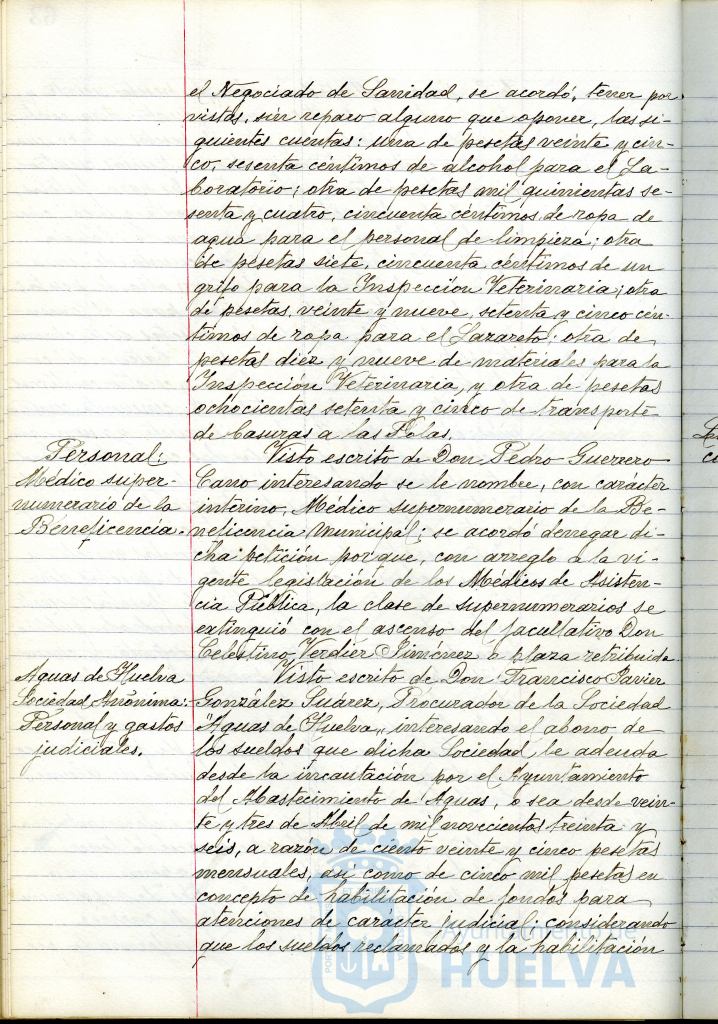 el Negociado de Sanidad, se acordó, tener por
vistas, sin reparo alguno que oponer, las si-
guientes cuentas: una de pesetas veinte y cin-
co, sesenta céntimos de alcohol para el La-
boratorio; otra de pesetas mil quinientas se-
senta y cuatro, cincuenta céntimos de ropa de
agua para el personal de limpieza; otra
de pesetas siete, cincuenta céntimos de un
grifo para la Inspección Veterinaria; otra
de pesetas, veinte y nueve, setenta y cinco cén-
timos de ropa para el Lazareto; otra de
pesetas diez y nueve de materiales para la
Inspección Veterinaria, y otra de pesetas
ochocientas setenta y cinco de transporte
de basuras a las
Personal:
Médico super-
numerario de la
Beneficencia.
Visto escrito de Don Pedro Guerrero
Cano interesando se le nombre, con carácter
interino, Médico supernumerario de la Be-
neficencia Municipal; se acordó denegar di-
cha petición porque, con arreglo a la vi-
gente legislación de los Médicos de Asisten-
cia Pública, la clase de supernumerarios se
extinguió con el ascenso del facultativo Don
Celestino Verdier Jiménez a plaza retribuida.
Aguas de Huelva
Sociedad Anónima:
Personal y gastos
judiciales.
Visto escrito de Don Francisco Javier
González Suárez, Procurador de la Sociedad
"Aguas de Huelva", interesando el abono de
los sueldos que dicha Sociedad le adeuda
desde la incautación por el Ayuntamiento
del Abastecimiento de Aguas, o sea desde vein-
te y tres de Abril de mil novecientos treinta y
seis, a razón de ciento veinte y cinco pesetas
mensuales, así como de cinco mil pesetas en
concepto de habilitación de fondos para
atenciones de carácter judicial; considerando
que los sueldos reclamados y la habilitación
Ayuntamiento de
HUELVA